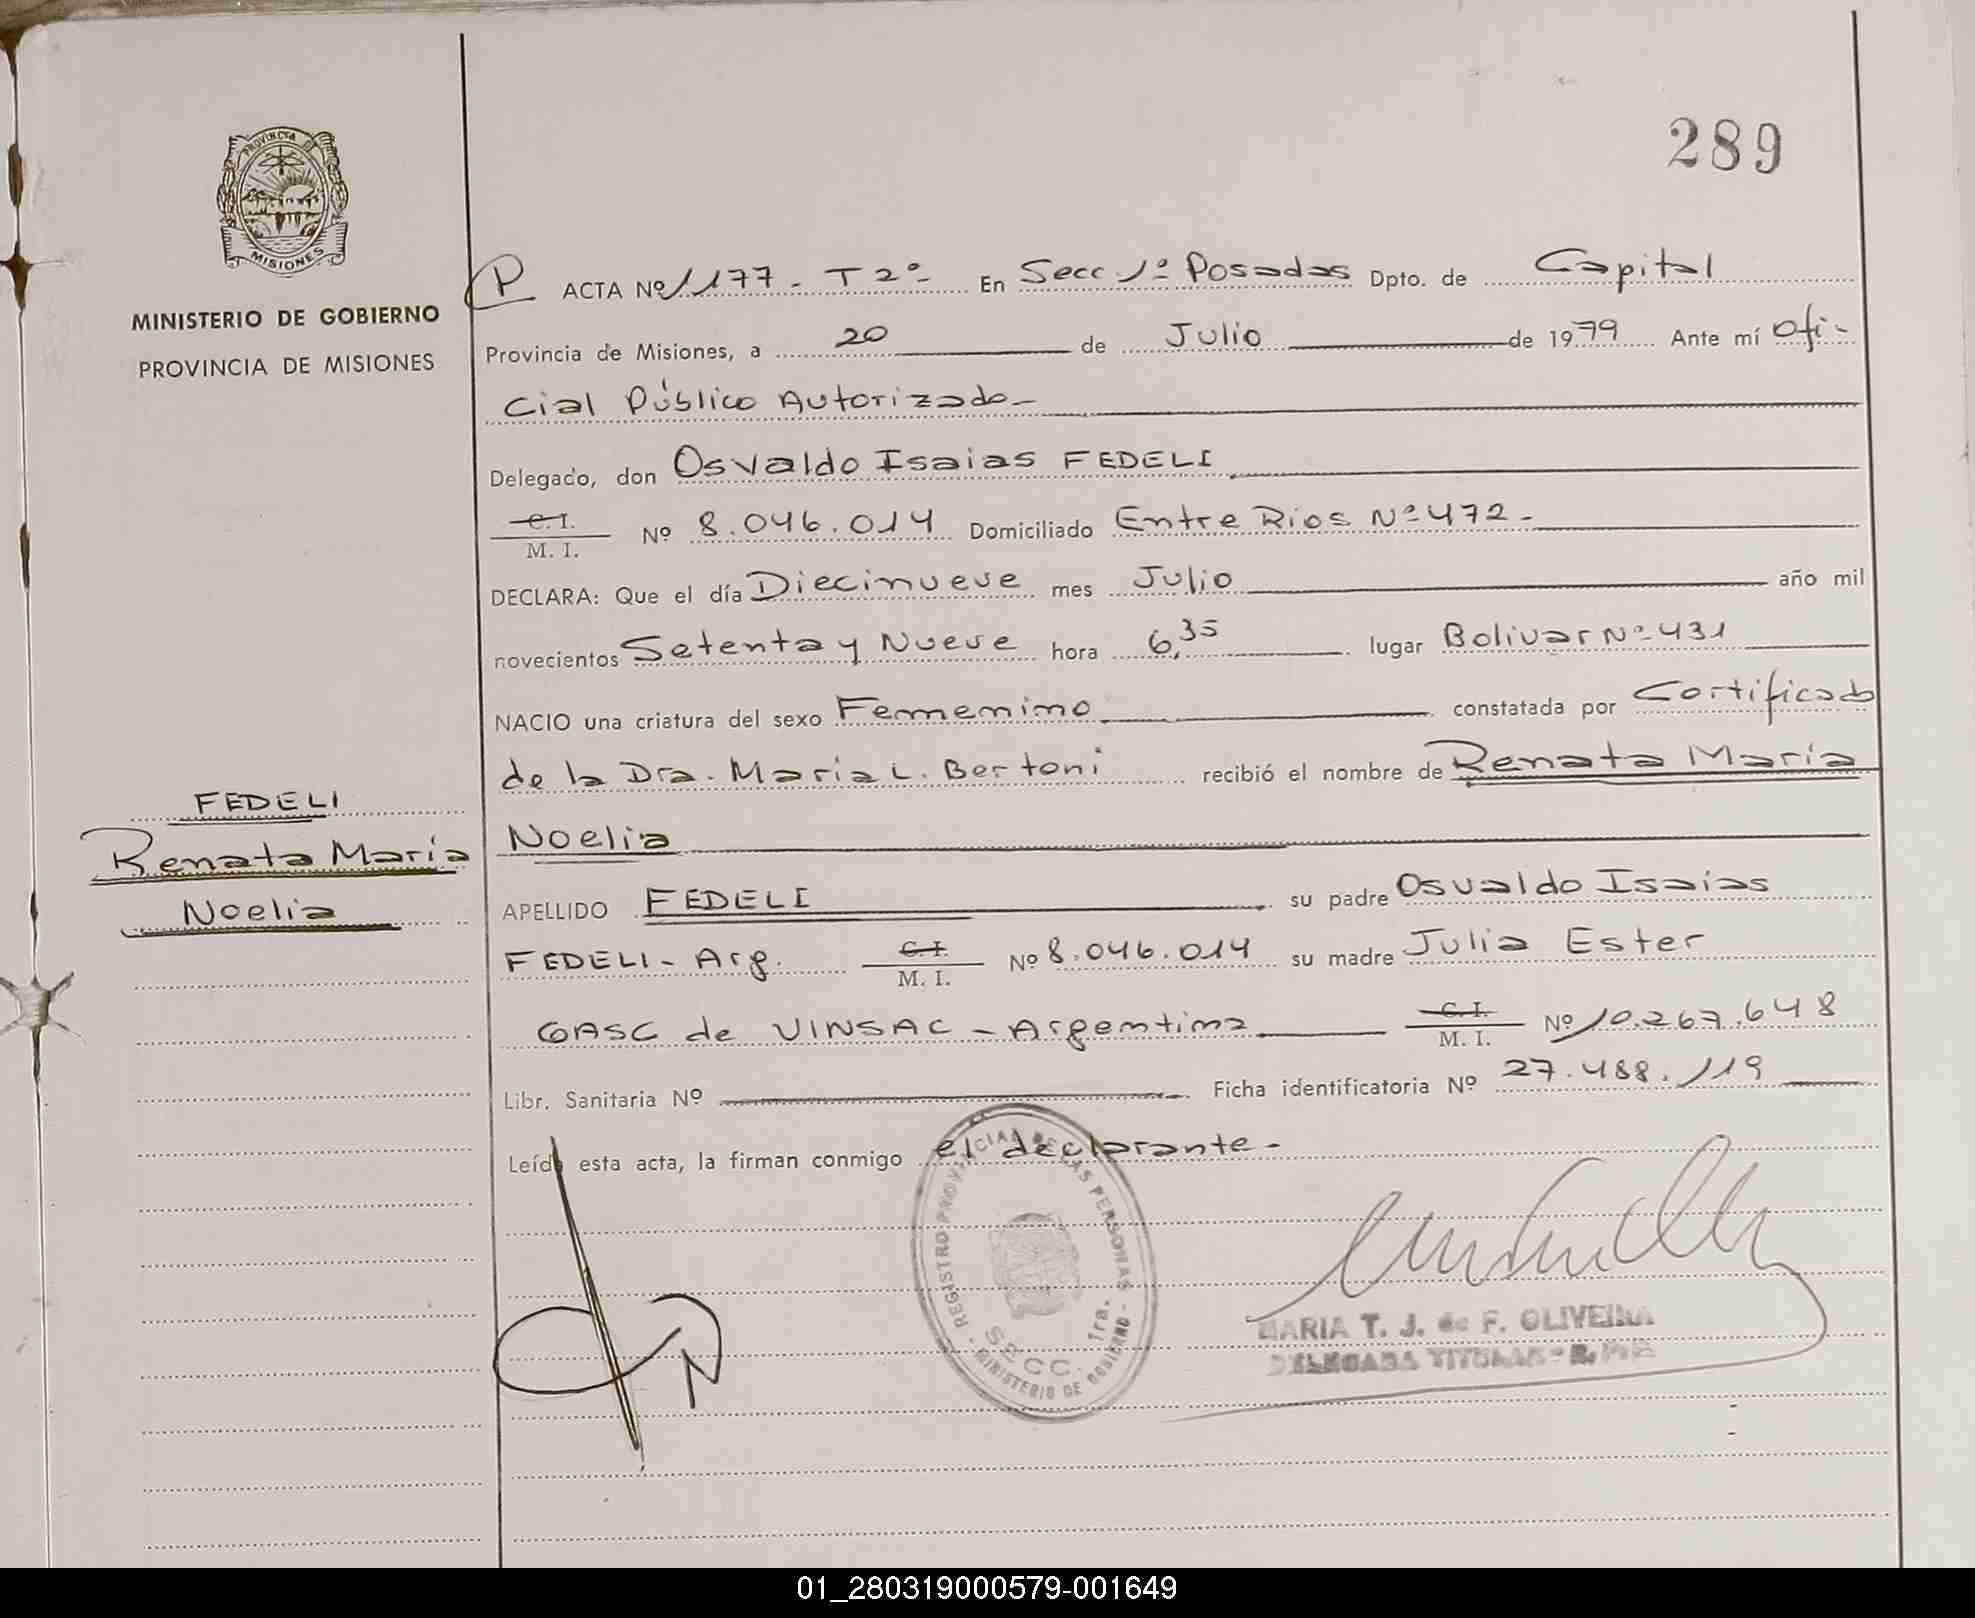 289
PROVINCIA DE
MISIONES
MINISTERIO DE GOBIERNO
PROVINCIA DE MISIONES
P ACTA Nº 1177 - T 2º - En Secc 1º Posadas Dpto. de Capital
Provincia de Misiones, a 20 de Julio de 1979 Ante mí Ofi-
cial Público Autorizado-
Delegado, don Osvaldo Isaias FEDELI
C.I. M. I. Nº 8.046.014 Domiciliado Entre Rios Nº 472-
DECLARA: Que el día Diecinueve mes Julio año mil
novecientos Setenta y Nueve hora 6,35 lugar Bolivar Nº 431
NACIO una criatura del sexo Femenino constatada por Certificado
de la Dra. Maria L. Bertoni recibió el nombre de Renata María
Noelia
APELLIDO FEDELI su padre Osvaldo Isaias
FEDELI - Arg. C.I. M. I. Nº 8.046.014 su madre Julia Ester
GASC de VINSAC - Argentina C.I. M. I. Nº 10.267.648
Libr. Sanitaria Nº Ficha identificatoria Nº 27.488.119
Leída esta acta, la firman conmigo el declarante-
FEDELI
Renata María
Noelia
REGISTRO PROVINCIAL DE LAS PERSONAS
SECC. 1ra.
MINISTERIO DE GOBIERNO
MARIA T. J. de F. OLIVEIRA
DELEGADA TITULAR - R. P. P.
01_280319000579-001649